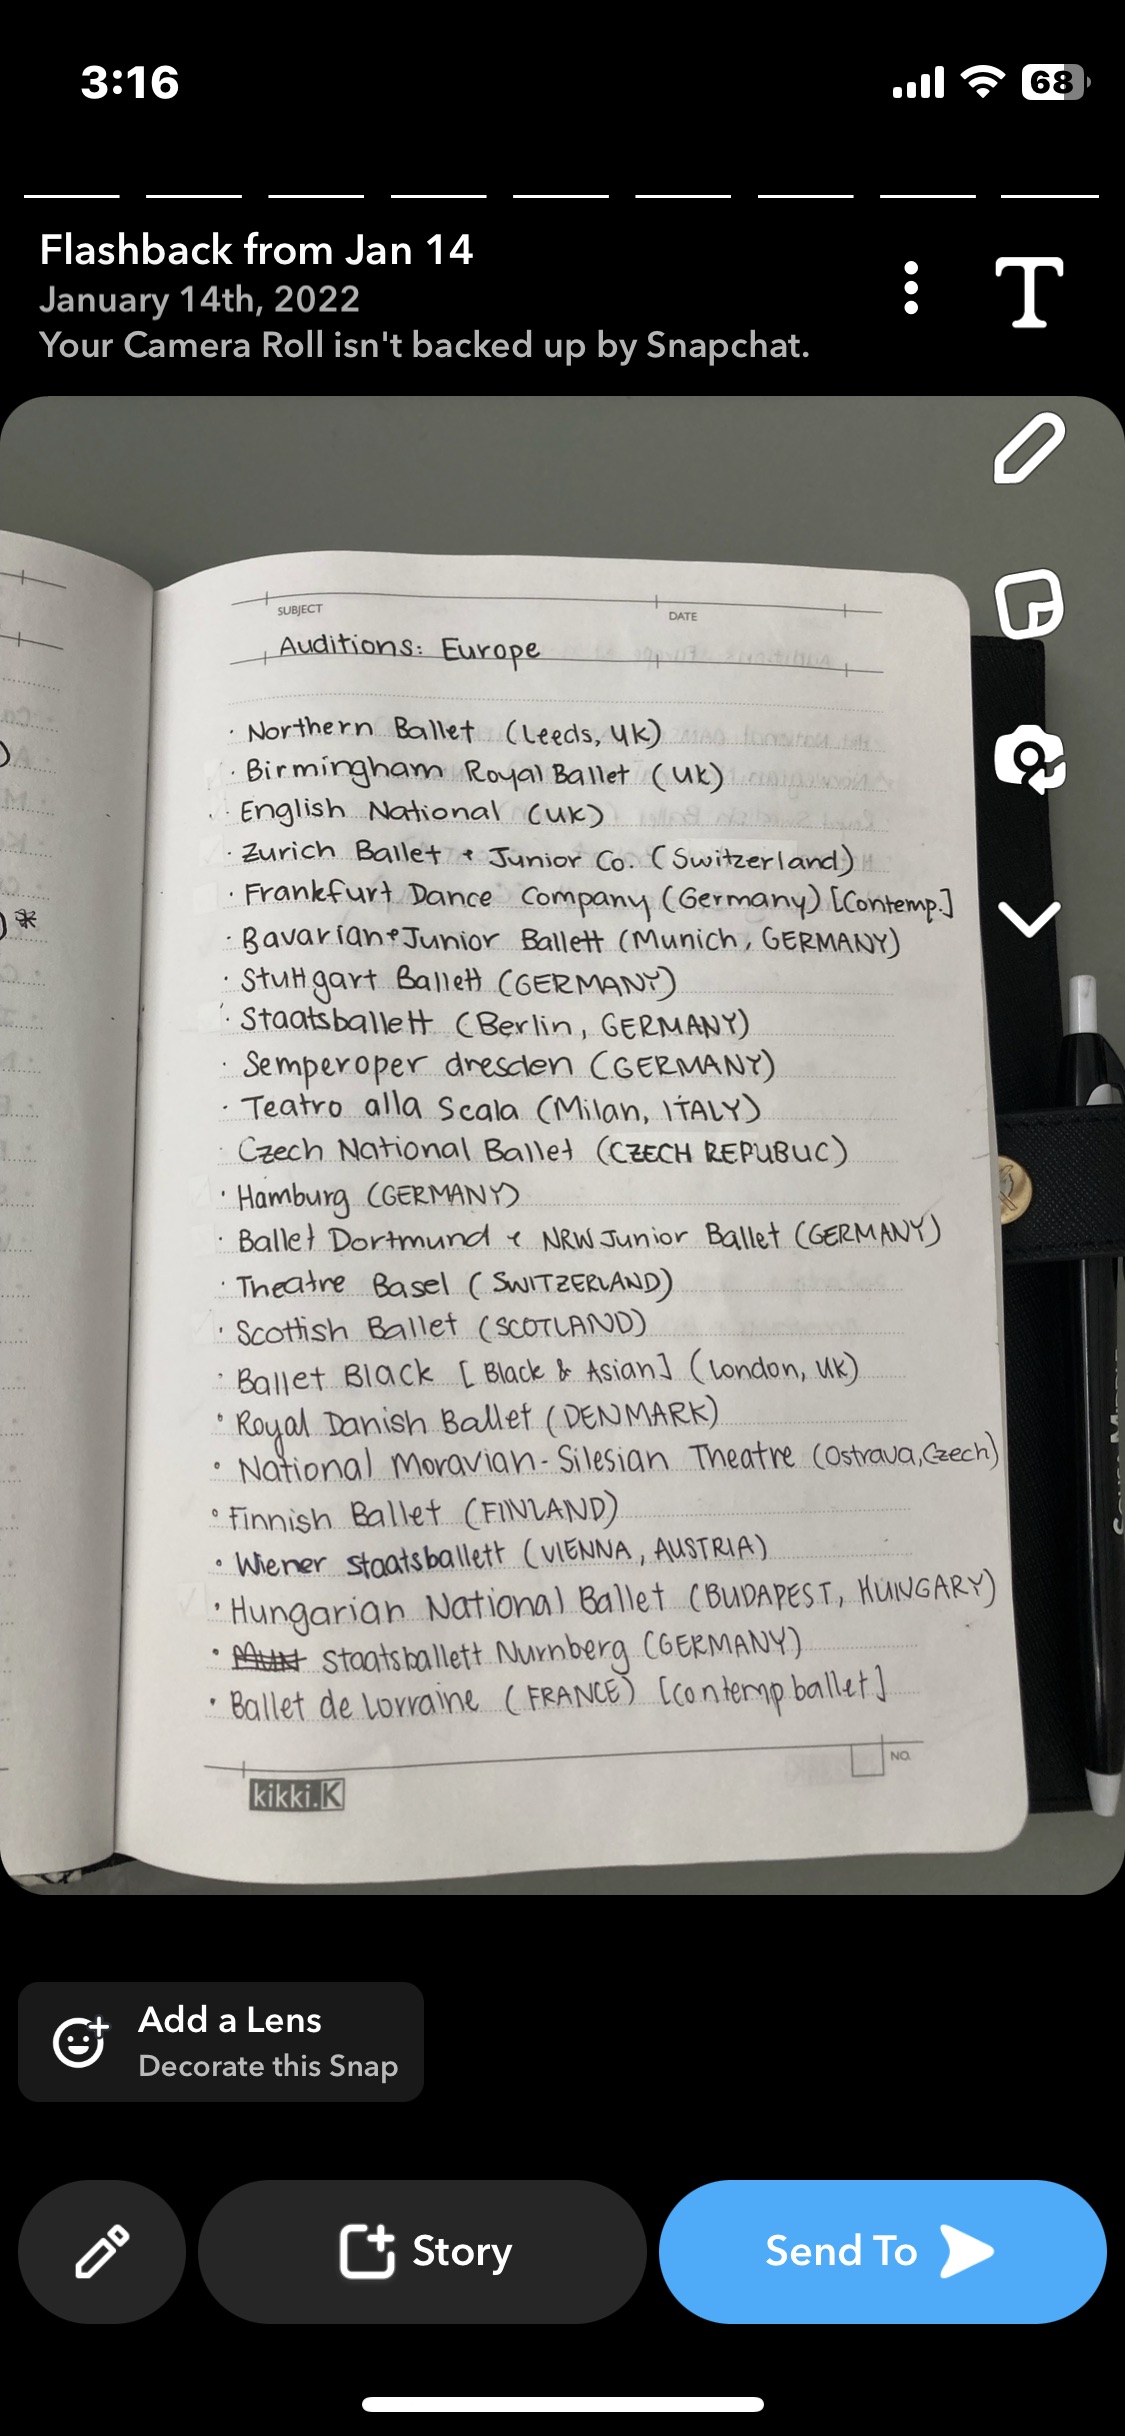 3:16
68
Flashback from Jan 14
January 14th, 2022
Your Camera Roll isn't backed up by Snapchat.
T
SUBJECT
DATE
Auditions: Europe
· Northern Ballet (Leeds, UK)
· Birmingham Royal Ballet (UK)
· English National (UK)
· Zurich Ballet + Junior Co. (Switzerland)
· Frankfurt Dance Company (Germany) [Contemp.]
· Bavarian + Junior Ballett (Munich, GERMANY)
· Stuttgart Ballett (GERMANY)
· Staatsballett (Berlin, GERMANY)
· Semperoper dresden (GERMANY)
· Teatro alla Scala (Milan, ITALY)
Czech National Ballet (CZECH REPUBLIC)
· Hamburg (GERMANY)
· Ballet Dortmund + NRW Junior Ballet (GERMANY)
· Theatre Basel (SWITZERLAND)
· Scottish Ballet (SCOTLAND)
· Ballet Black [Black & Asian] (London, UK)
· Royal Danish Ballet (DENMARK)
· National Moravian-Silesian Theatre (Ostrava, Czech)
· Finnish Ballet (FINLAND)
· Wiener Staatsballett (VIENNA, AUSTRIA)
· Hungarian National Ballet (BUDAPEST, HUNGARY)
· Staatsballett Nurnberg (GERMANY)
· Ballet de Lorraine (FRANCE) [contemp ballet]
NO.
kikki.K
Add a Lens
Decorate this Snap
Story
Send To